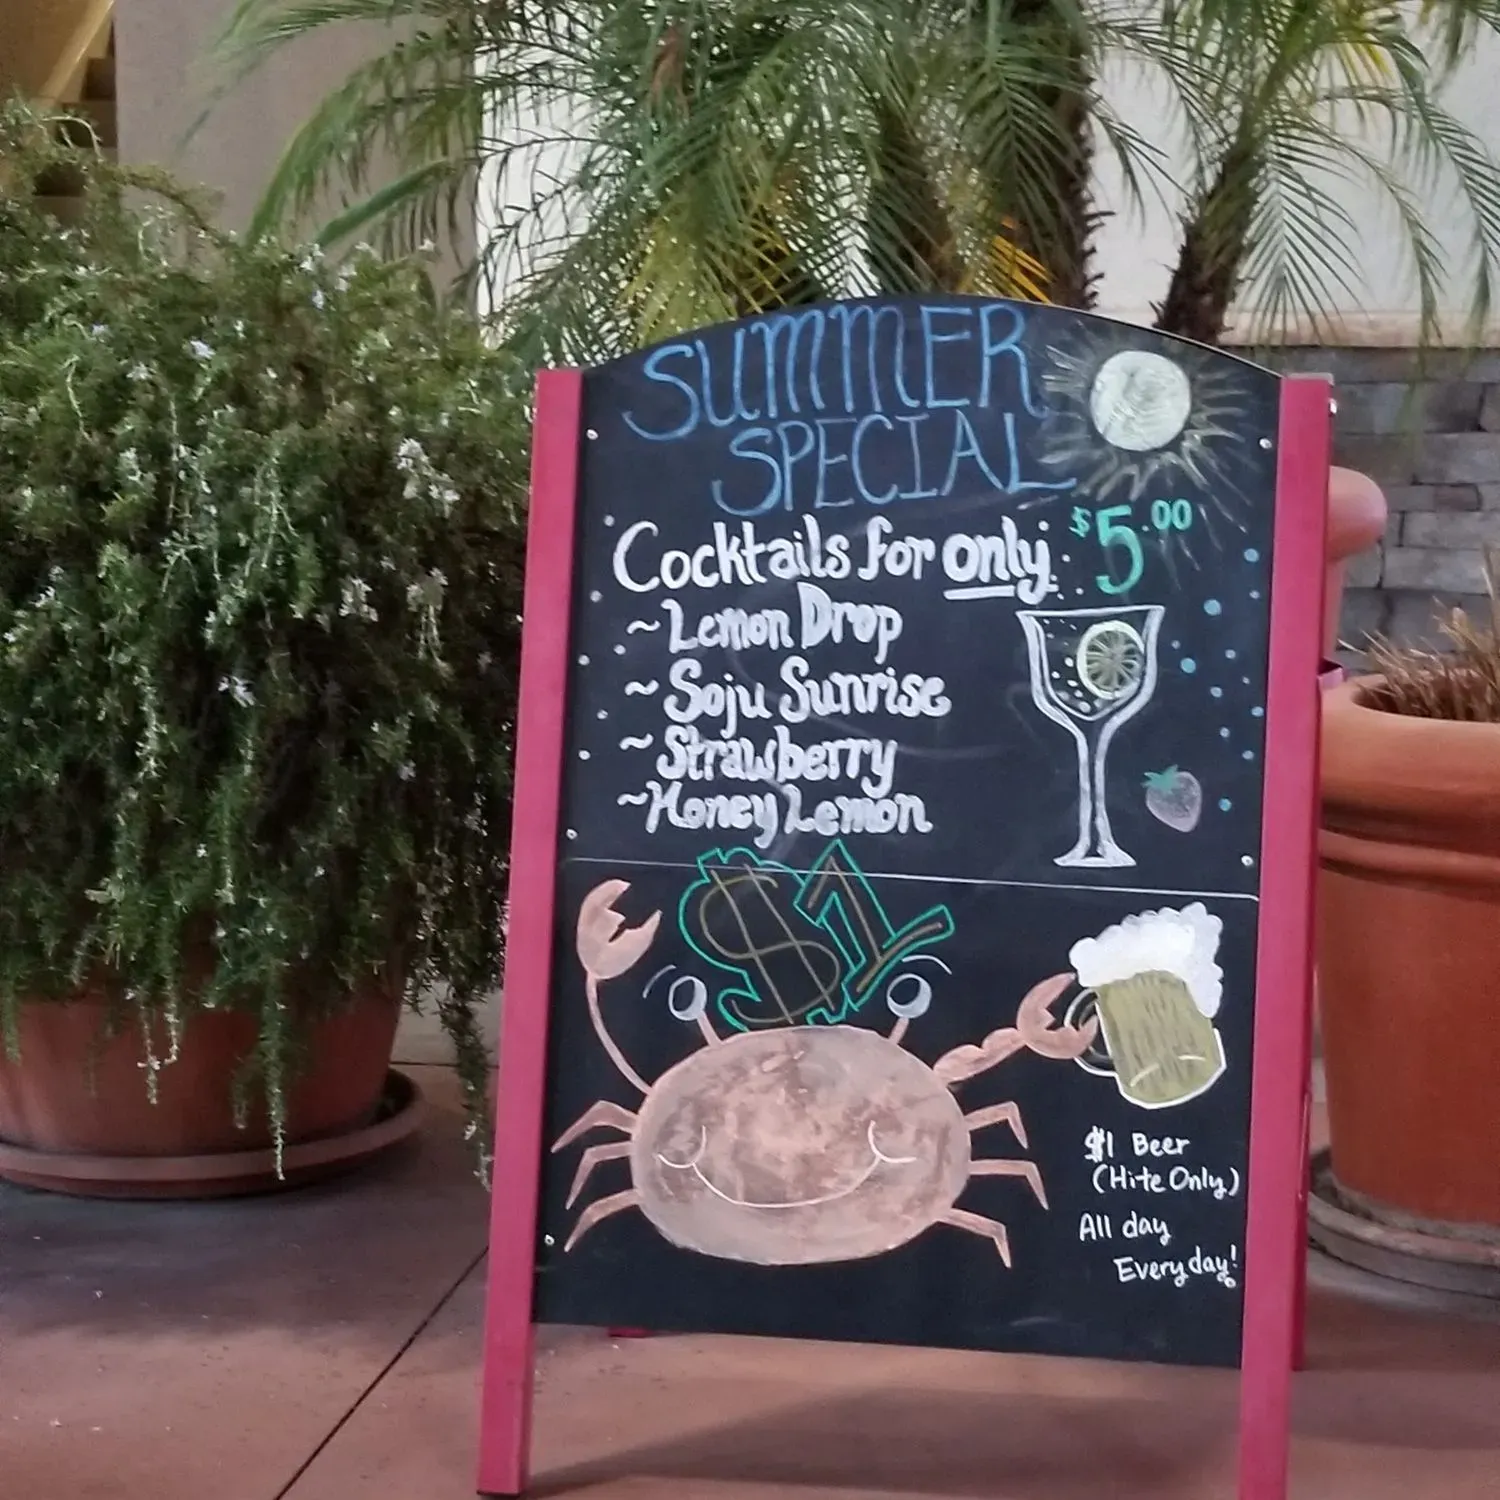 SUMMER
SPECIAL
Cocktails for only $5.00
~Lemon Drop
~Soju Sunrise
~Strawberry
~Honey Lemon
$1
$1 Beer
(Hite Only)
All day
Everyday!